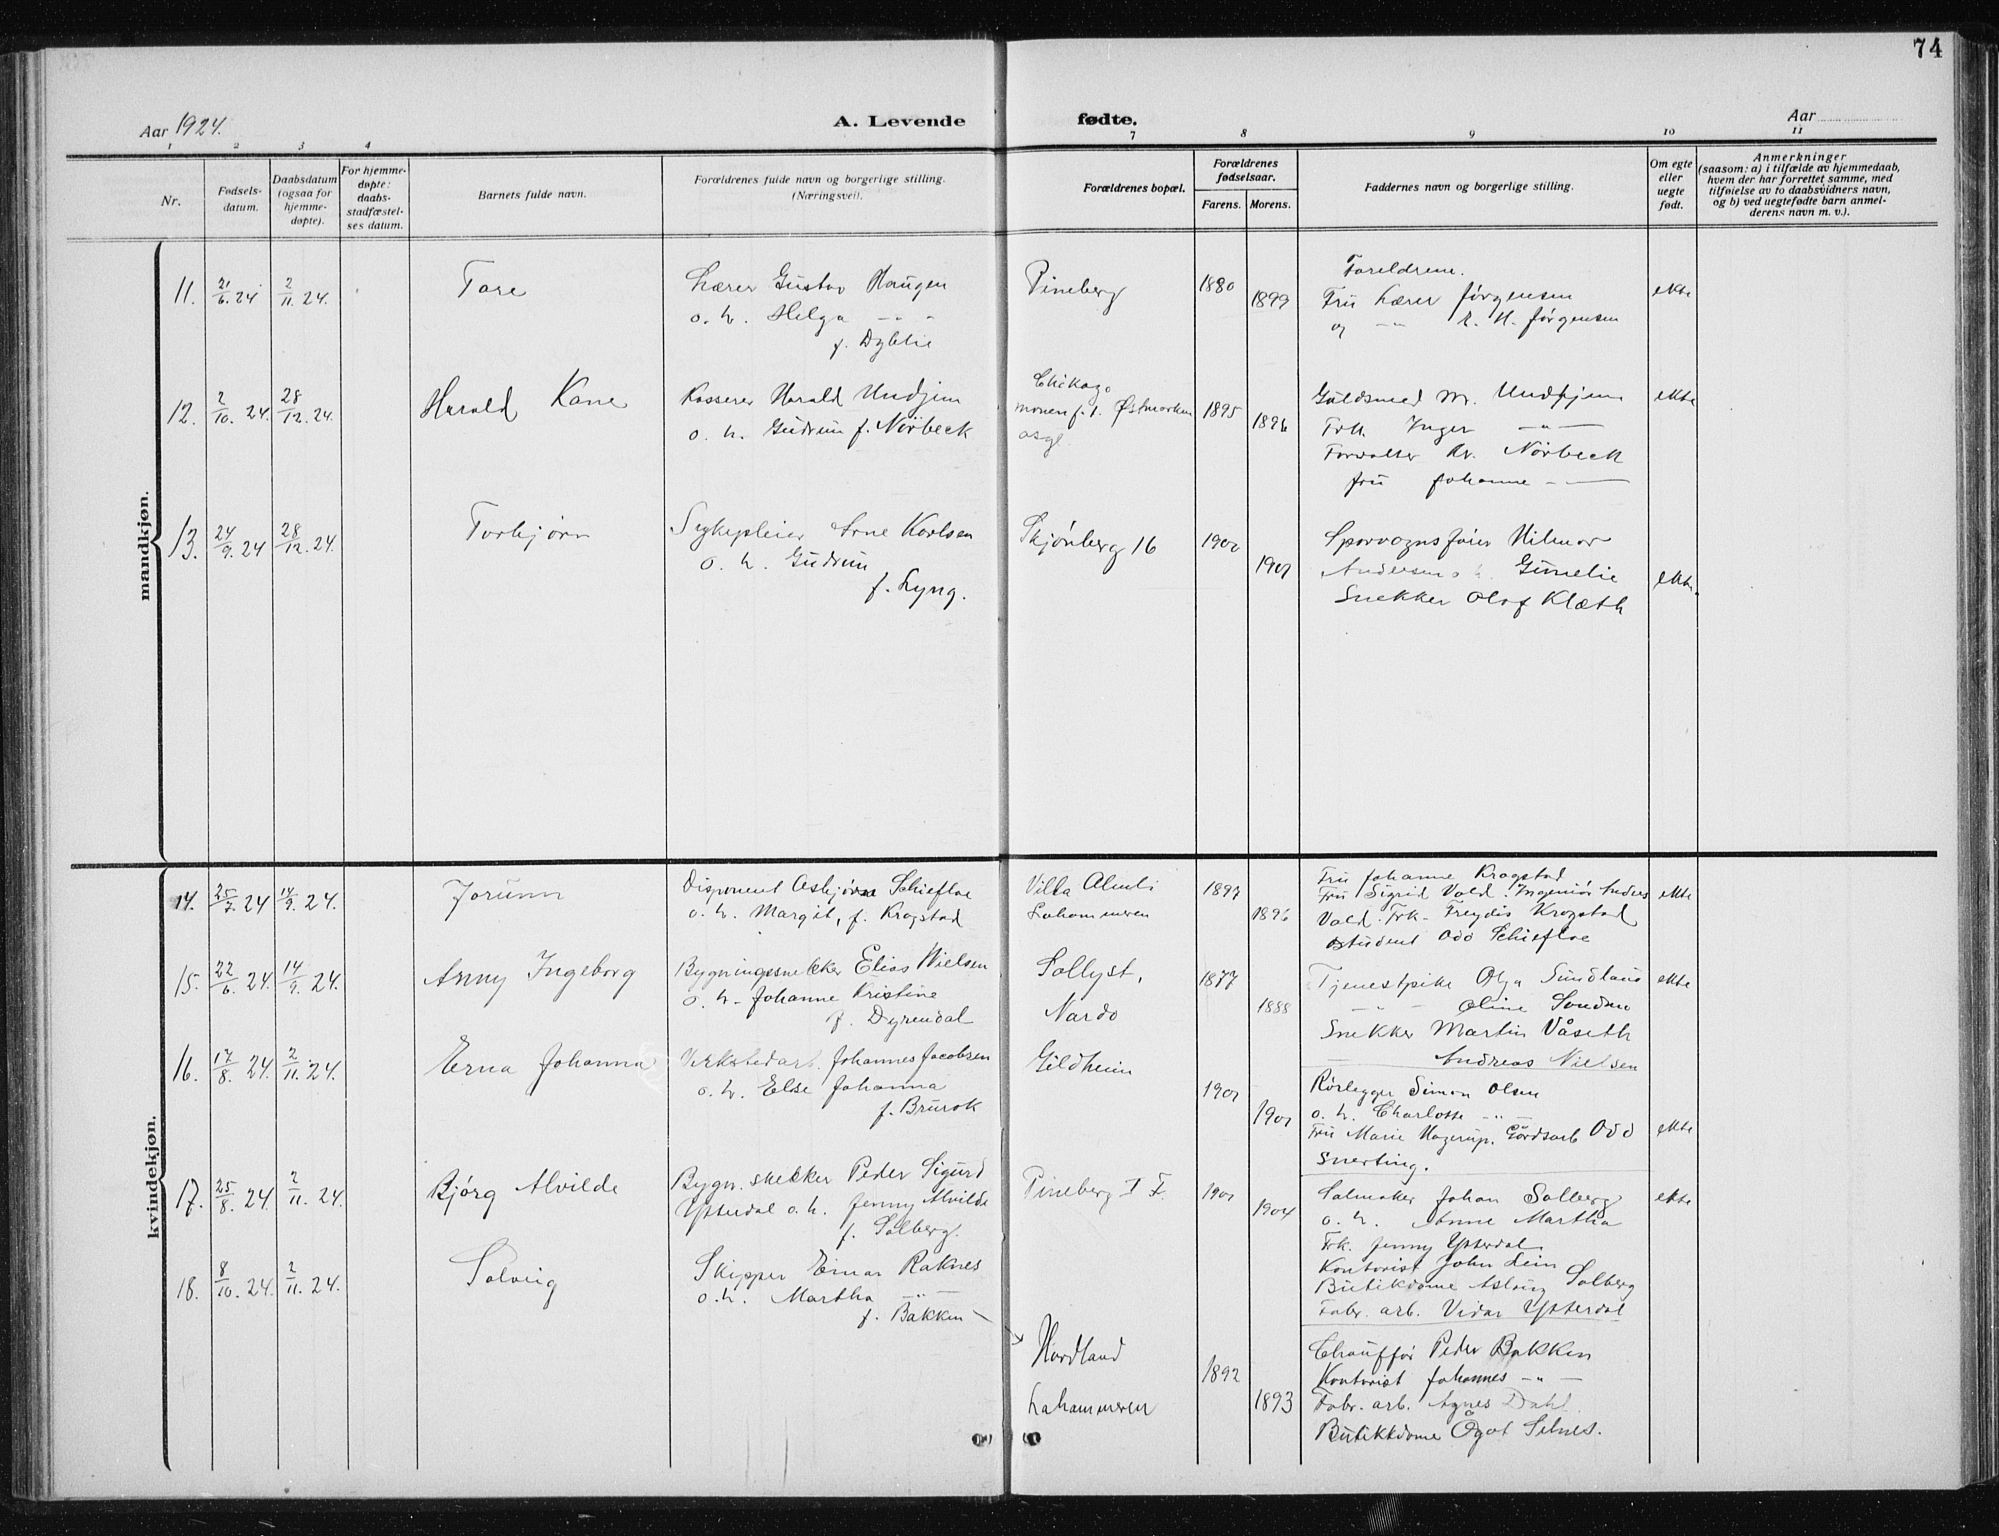 74
Aar 1924.
A. Levende fødte.
Aar
1 2 3 4 7 8 9 10 11
Nr.
Fødsels-
datum.
Daabsdatum
(ogsaa for
hjemme-
døpte).
For hjemme-
døpte:
daabs-
stadfæstel-
ses datum.
Barnets fulde navn.
Forældrenes fulde navn og borgerlige stilling.
(Næringsvei).
Forældrenes bopæl.
Forældrenes
fødselsaar.
Farens. Morens.
Faddernes navn og borgerlige stilling.
Om egte
eller
uegte
født.
Anmerkninger
(saasom: a) i tilfælde av hjemmedaab,
hvem der har forrettet samme, med
tilføielse av to daabsvidners navn,
og b) ved uegtefødte barn anmel-
derens navn m. v.).
mandkjøn.
11. 21/6 24 2/11 24.
Tore
Lærer Gustav Haugen
o. h. Helga - " -
f. Dyblie
Pineberg
1880
1899
Foreldrene.
Fru Lærer Jørgensen
og - " - H. Jørgensen
ekte
12. 2/10. 24. 28/12. 24.
Harald Kane
Kasserer Harald Undjem
o. h. Gudrun f. Nørbeck
Chikago
monen f. l. Østmarken
asyl.
1895
1896
Guldsmed M. Undhjem
Frk. Inger - " -
Forvalter Kr. Nørbeck
fru Johanne - " -
ekte
13. 24/9. 24 28/12. 24.
Torbjørn
Sykepleier Arne Karlsen
o. h. Gudrun
f. Lyng.
Skjønberg 16
1900
1901
Sporvognsfører Hilmar
Andersen o. h. Gunelie
Snekker Olaf Klæth
ekte
kvindekjøn.
14. 25/7. 24 14/9. 24.
Jorunn
Disponent Asbjørn Schiefloe
o. h. Margit, f. Krogstad
Villa Almli
Lohammeren
1897
1896
Fru Johanne Krogstad
Fru Sigrid Vold. Ingeniør Anders
Vold. Frk. Freydis Krogstad
student Odd Schiefloe
ekte
15. 22/6. 24. 14/9. 24.
Anny Ingeborg
Bygningssnekker Elias Nielsen
o. h. Johanne Kristine
f. Dyrendal
Sollyst,
Nardo
1877
1888
Tjenestpike Olga Sundland
- " - Oline Sundmo
Snekker Martin Våseth
— Andreas Nielsen
ekte
16. 17/8. 24. 2/11. 24.
Erna Johanna
Verkstedarb. Johannes Jacobsen
o. h. Else Johanna
f. Brurok
Gildheim
1901
1901
Rørlegger Simon Olsen
o. h. Charlotte - " -
Fru Marie Hagerup. Gårdsarb Odd
Snerting.
ekte
17. 25/8. 24. 2/11. 24.
Bjørg Alvilde
Bygn. snekker Peder Sigurd
Ytterdal o. h. Jenny Alvilde
f. Solberg.
Pineberg I F.
1901
1904
Salmaker Johan Solberg
o. h. Anne Martha
Frk. Jenny Ytterdal
Kontorist John Lein
Butikdame Aslaug Solberg
Fabr. arb. Vidar Ytterdal
ekte
18. 8/10. 24. 2/11. 24.
Solveig
Skipper Einar Raknes
o. h. Martha - " -
f. Bakken
Hordland
Lohammeren
1892
1893
Chauffør Peder Bakken
Kontorist Johannes - " -
Fabr. arb. Agnes Dahl
Butikkdame Ågot Selnes.